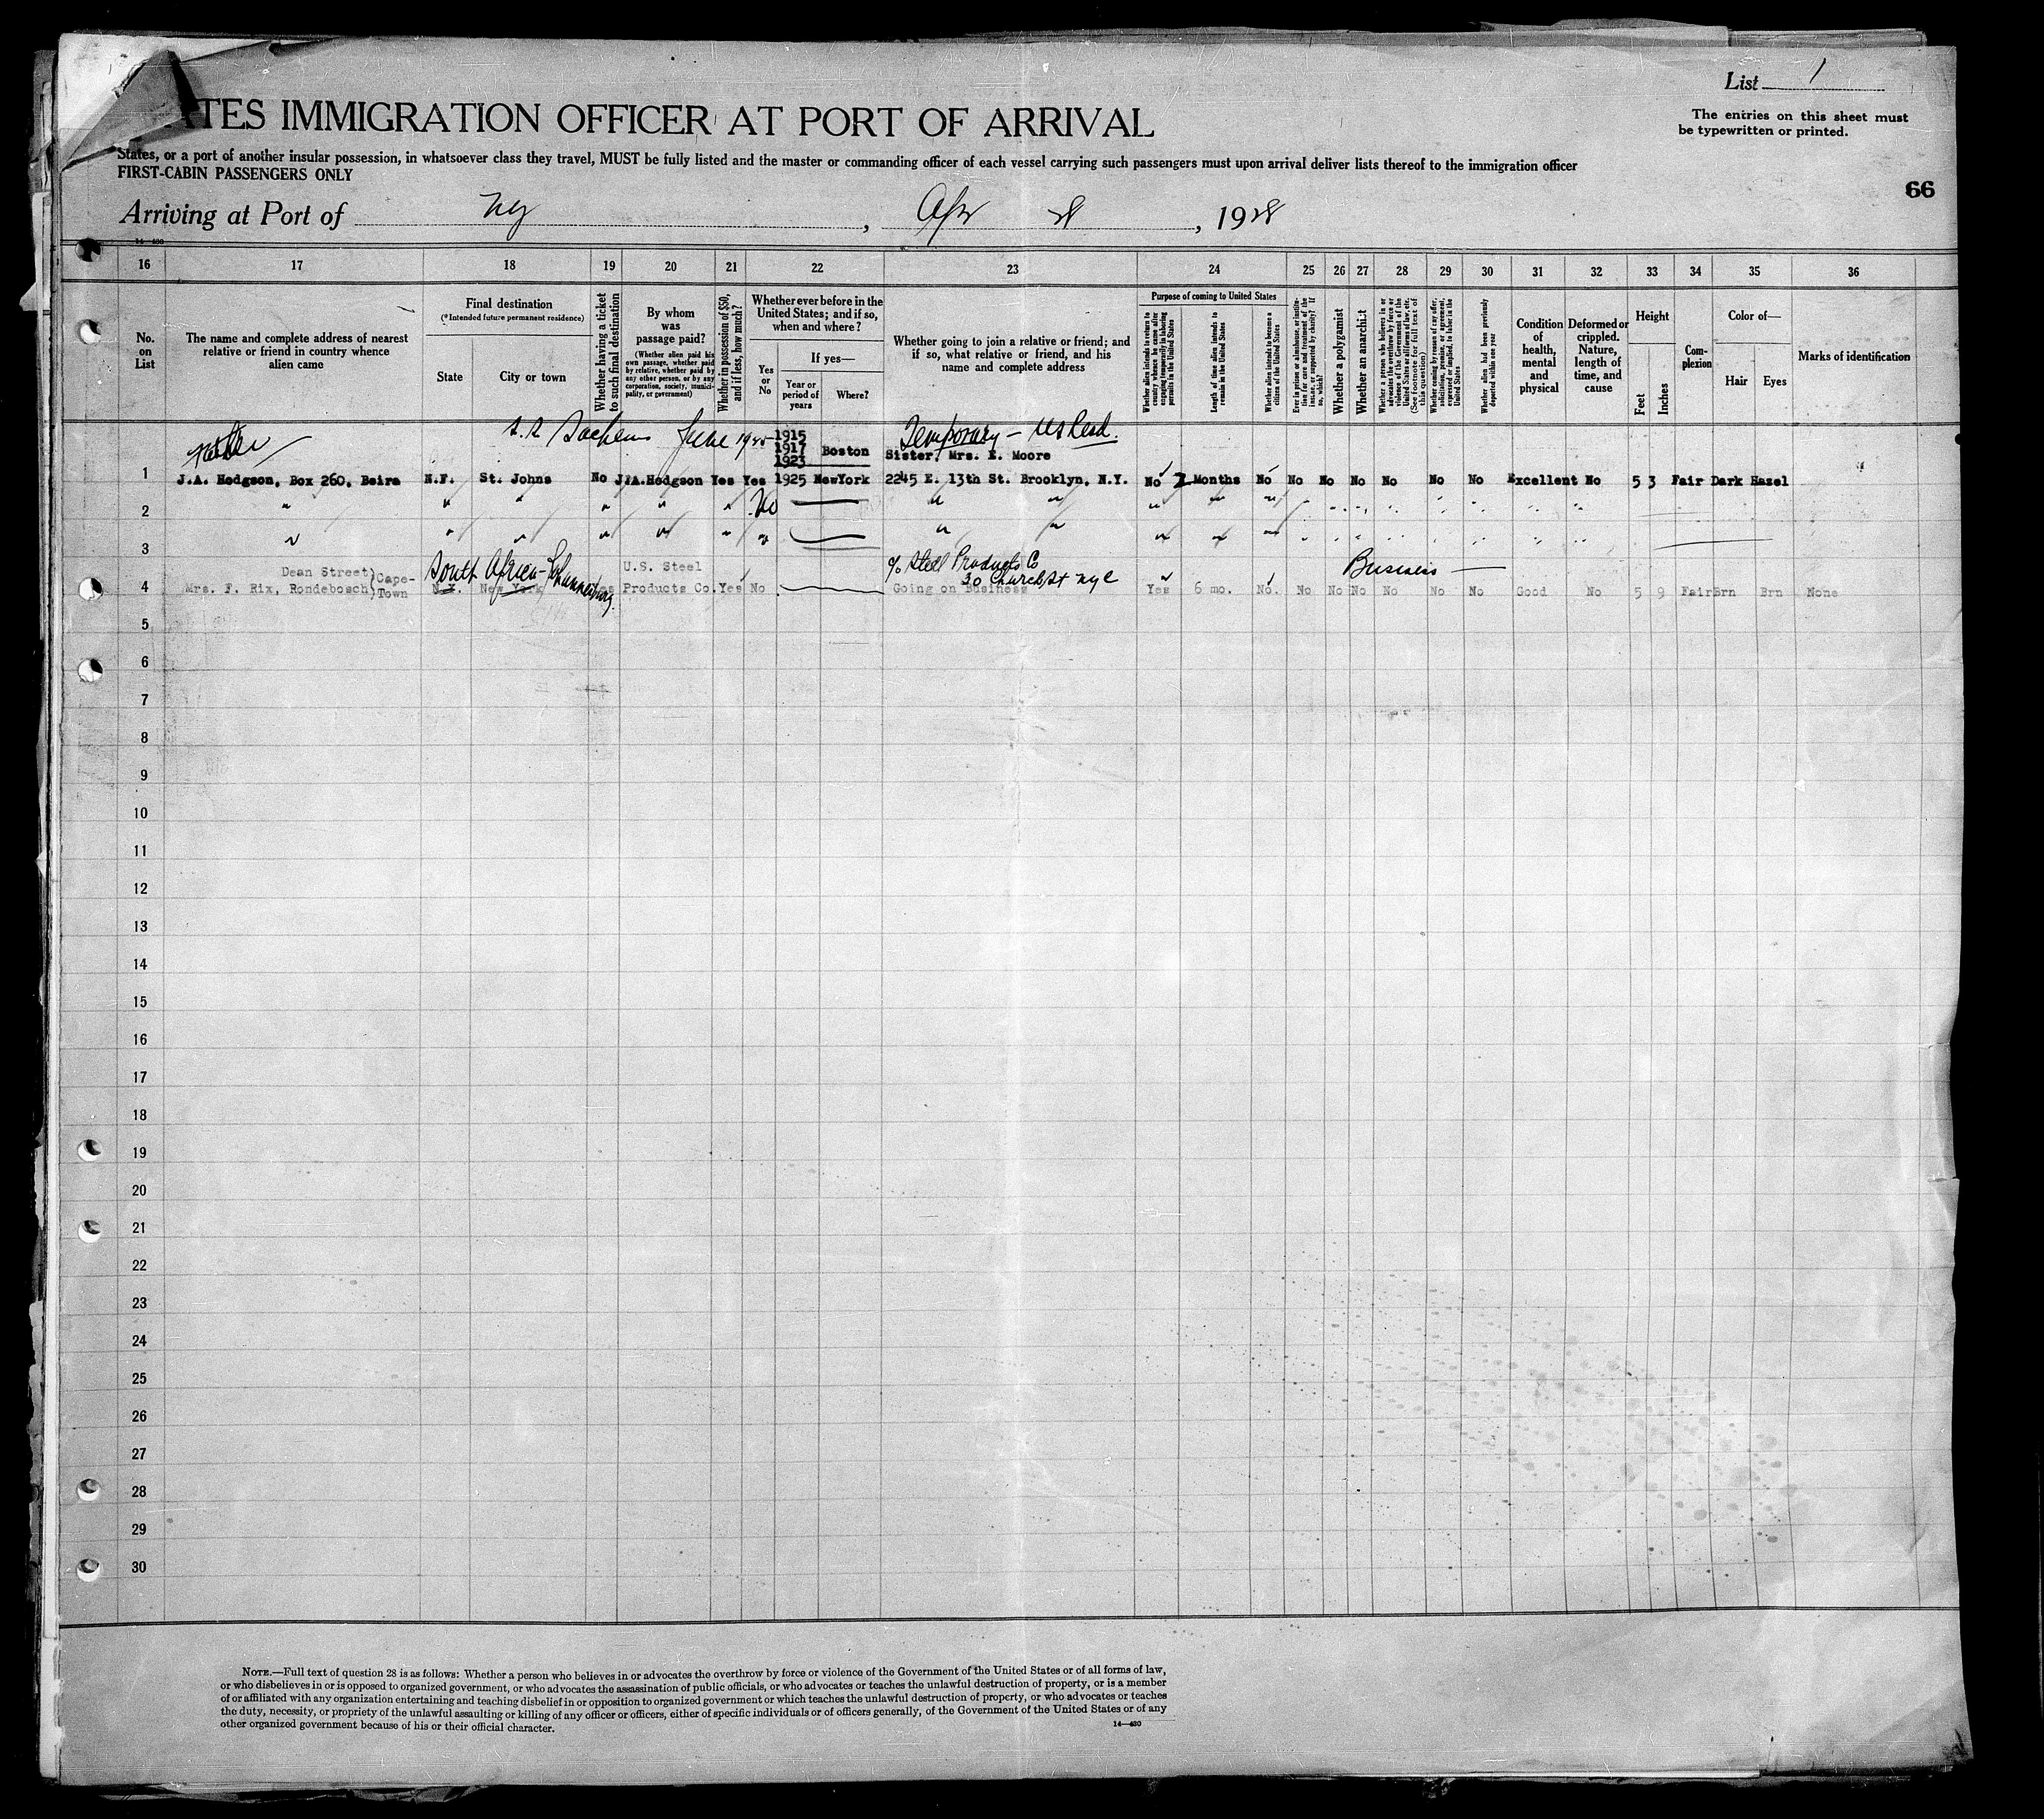 List 1
The entries on this sheet must
be typewritten or printed.
ATES IMMIGRATION OFFICER AT PORT OF ARRIVAL
States, or a port of another insular possession, in whatsoever class they travel, MUST be fully listed and the master or commanding officer of each vessel carrying such passengers must upon arrival deliver lists thereof to the immigration officer
FIRST-CABIN PASSENGERS ONLY
66
Arriving at Port of NY, Apr 28, 1928
14—480
16 17 18 19 20 21 22 23 24 25 26 27 28 29 30 31 32 33 34 35 36
No.
on
List
The name and complete address of nearest
relative or friend in country whence
alien came
Final destination
(*Intended future permanent residence)
State
City or town
Whether having a ticket
to such final destination
By whom
was
passage paid?
(Whether alien paid his
own passage, whether paid
by relative, whether paid by
any other person, or by any
corporation, society, munici-
pality, or government)
Whether in possession of $50,
and if less, how much?
Whether ever before in the
United States; and if so,
when and where?
Yes
or
No
If yes—
Year or
period of
years
Where?
Whether going to join a relative or friend; and
if so, what relative or friend, and his
name and complete address
Purpose of coming to United States
Whether alien intends to return to
country whence he came after
engaging temporarily in laboring
pursuits in the United States
Length of time alien intends to
remain in the United States
Whether alien intends to become a
citizen of the United States
Ever in prison or almshouse, or institu-
tion for care and treatment of the
insane, or supported by charity? If
so, which?
Whether a polygamist
Whether an anarchist
Whether a person who believes in or
advocates the overthrow by force or
violence of the Government of the
United States or all forms of law, etc.
(See footnote for full text of
this question)
Whether coming by reason of any offer,
solicitation, promise, or agreement,
expressed or implied, to labor in the
United States
Whether alien had been previously
deported within one year
Condition
of
health,
mental
and
physical
Deformed or
crippled.
Nature,
length of
time, and
cause
Height
Feet
Inches
Com-
plexion
Color of—
Hair
Eyes
Marks of identification
S.S. Sachem June 1925 1915 Temporary — US Resd.
1917 Boston
1923 Sister, Mrs. E. Moore
1 J.A. Hodgson, Box 260, Beira N.F. St. Johns No J.A.Hodgson Yes Yes 1925 NewYork 2245 E. 13th St. Brooklyn, N.Y. No 2 Months No No No No No No No Excellent No 5 3 Fair Dark Hazel
2 " " " " " " No " " " " " " " " " " " " "
3 " " " " " " " " " " " " " " " " " " " "
Dean Street Cape- South Africa - Johannesburg U.S. Steel c/o Steel Products Co
30 Church St NYC Business
4 Mrs. F. Rix, Rondebosch Town N.Y. New York Yes Products Co. Yes No Going on Business Yes 6 mo. No. No No No No No No Good No 5 9 Fair Brn Brn None
5
6
7
8
9
10
11
12
13
14
15
16
17
18
19
20
21
22
23
24
25
26
27
28
29
30
NOTE.—Full text of question 28 is as follows: Whether a person who believes in or advocates the overthrow by force or violence of the Government of the United States or of all forms of law,
or who disbelieves in or is opposed to organized government, or who advocates the assassination of public officials, or who advocates or teaches the unlawful destruction of property, or is a member
of or affiliated with any organization entertaining and teaching disbelief in or opposition to organized government or which teaches the unlawful destruction of property, or who advocates or teaches
the duty, necessity, or propriety of the unlawful assaulting or killing of any officer or officers, either of specific individuals or of officers generally, of the Government of the United States or of any
other organized government because of his or their official character.
14—480